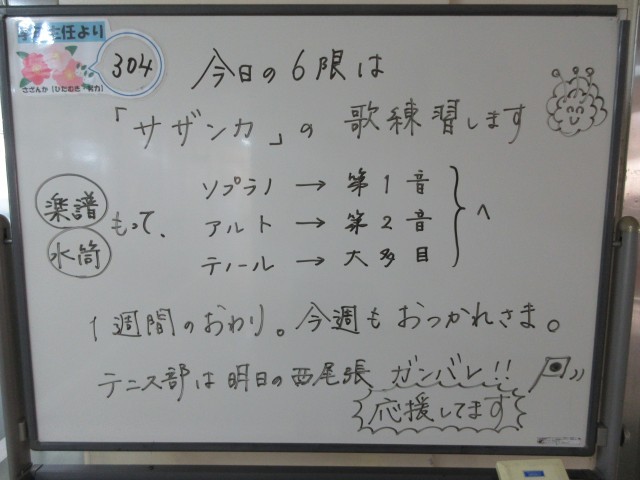 主任より
304
さざんか(ひたむき 努力)
今日の6限は
「サザンカ」の 歌練習します
楽譜
水筒
もって、
ソプラノ → 第1音
アルト → 第2音
テノール → 大多目
へ
1週間のおわり。今週もおつかれさま。
テニス部は明日の西尾張 ガンバレ!!
応援してます